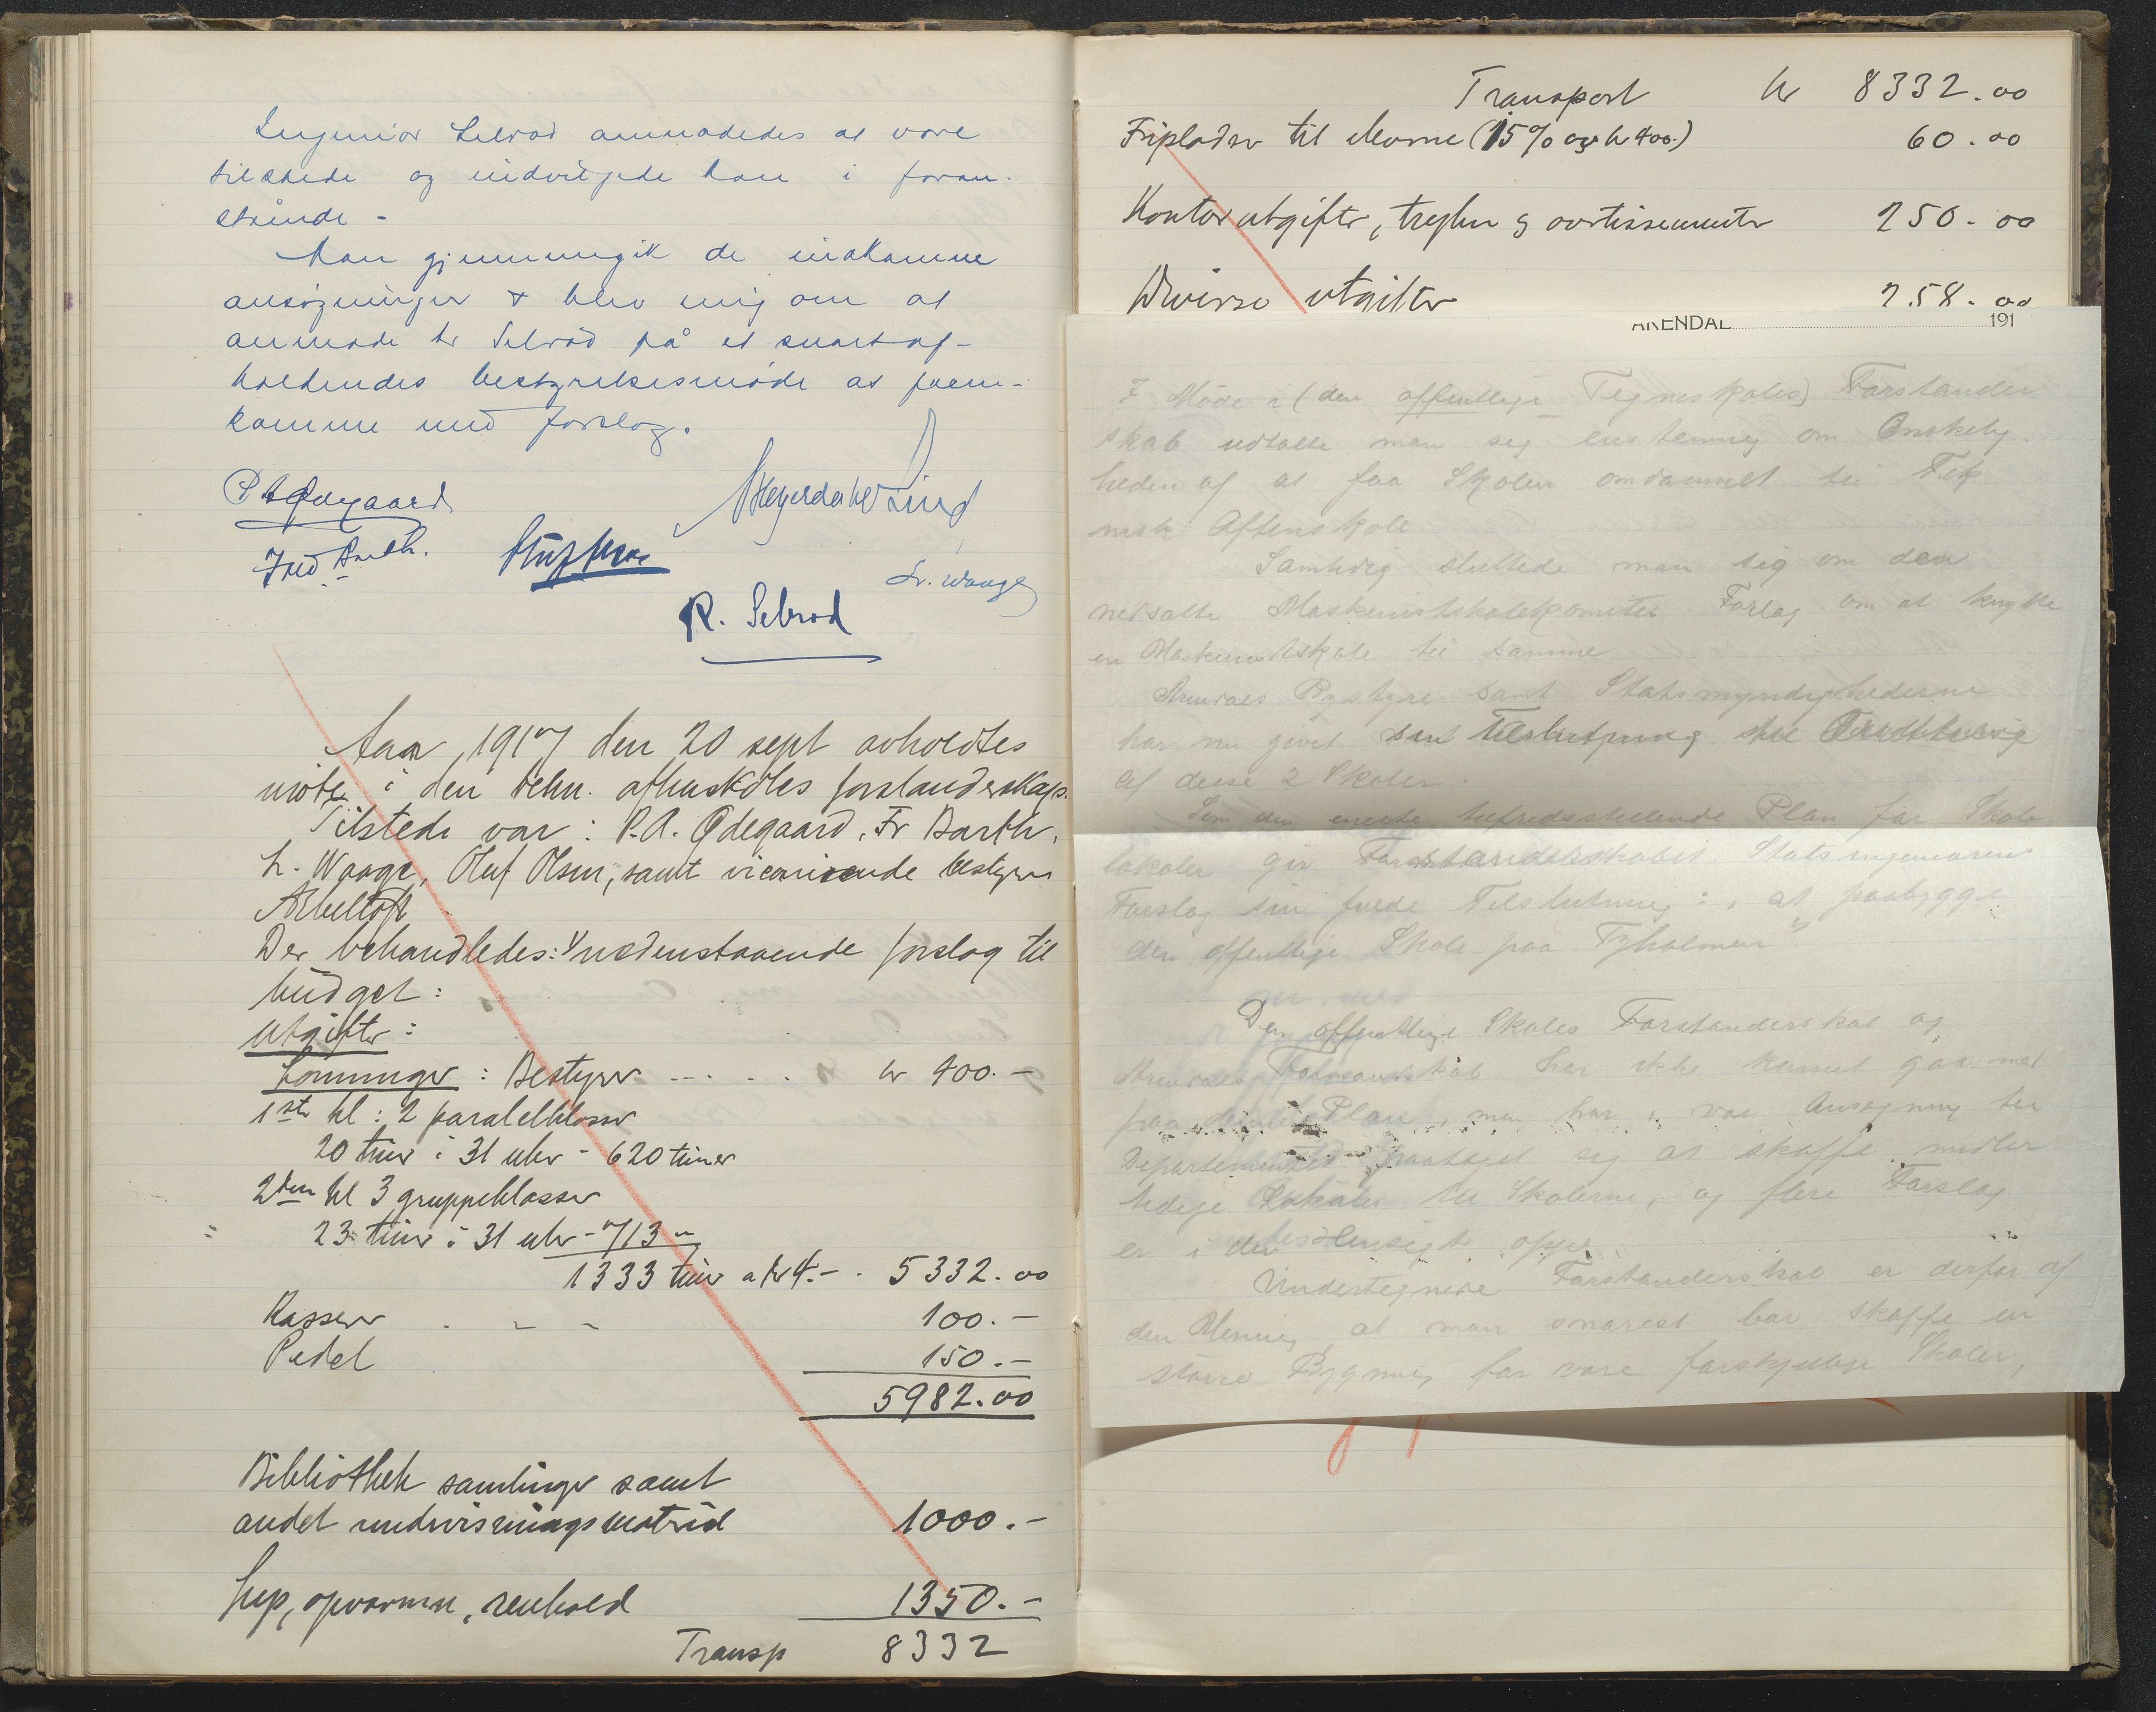 Ingeniør Selrod anmodedes at være
tilstede og indvilgede han i foran-
stående -
Man gjennemgik de indkomne
ansøgninger & blev enig om at
anmode hr Selrod på et snart af-
holdendes bestyrelsesmøde at frem-
komme med forslag.
P A Ødegaard
Heyerdahl Lind
Fred Barth.
L. Waage
R. Selrod
Aar 1917 den 20 sept avholdtes
møte i den tekn. aftenskoles forstanderskap.
Tilstede var: P.A. Ødegaard, Fr Barth,
L. Waage, Oluf Olsen, samt vicarierende bestyrer
Arbeltoft
Der behandledes: 1/ nedenstaaende forslag til
budget:
Utgifter:
Lønninger: Bestyrer - - . . . kr 400.-
1ste kl: 2 paralelklasser
20 timer i 31 uker - 620 timer
2den kl 3 gruppeklasser
23 timer i 31 uker - 713 "
1333 timer a kr 4.- . 5332.00
Kasserer . - - 100.-
Pedel 150.-
5982.00
Bibliothek samlinger samt
andet undervisningsmateriel 1000.-
Lys, opvarmn, renhold 1350.-
Transp 8332
Transport kr 8332.00
Fripladser til eleverne (15% av kr 400.) 60.00
Kontorutgifter, tryksn og avertissementer 250.00
Diverse utgifter 258.00
ARENDAL 191
I Møde i (den offentlige Tegneskoles) Forstander
skab udtalte man seg enstemmig om Ønskelig
heden af at faa Skolen omdannet til Tek
nisk Aftenskole
Samtidig sluttede man sig om den
nedsatte Maskinistskolekomites Forslag om at knytte
en Maskinistskole til samme
Arendals Bystyre samt Statsmyndighederne
har nu givet sin Tilslutning til Oprettelse
af disse 2 Skoler.
Som den eneste tilfredsstillende Plan for Skole
lokaler gir Forstanderskabet Statsingeniørens
Forslag sin fulde Tilslutning: "at paabygge
den offentlige Skole paa Tyholmen"
Den offentlige Skoles Forstanderskab og
Arendals Formandskab har ikke kunnet gaa med
paa denne Plan, men har i vor Ansøgning til
Departementet paataget seg at skaffe midler
tidige Lokaler til Skolerne, og flere Forslag
er i den Hensigt oppe
Undertegnede Forstanderskab er derfor af
den Mening at man snarest bør skaffe en
større Bygning for vore forskjellige Skoler,